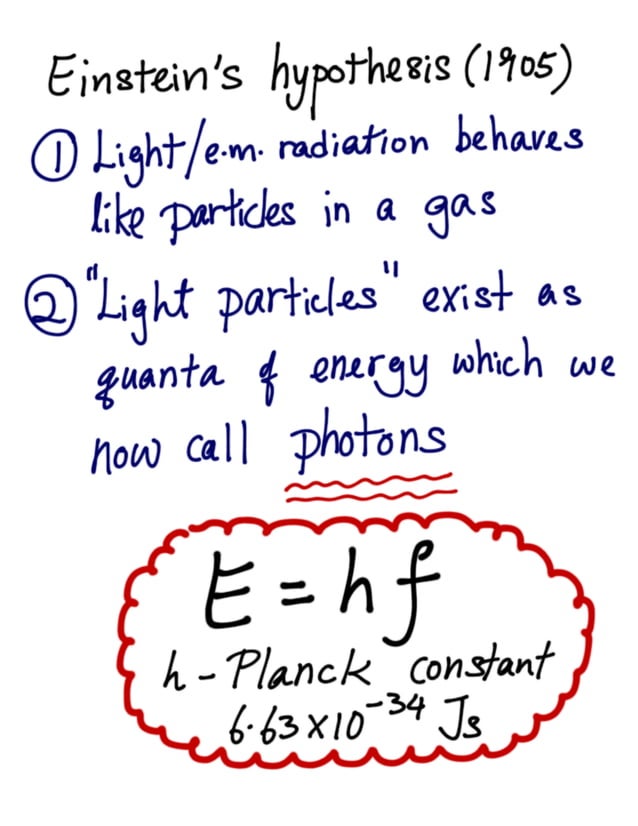 Einstein's hypothesis (1905)
① Light/e.m. radiation behaves
like particles in a gas
② "Light particles" exist as
quanta of energy which we
now call photons
E = hf
h - Planck constant
6.63 × 10⁻³⁴ Js